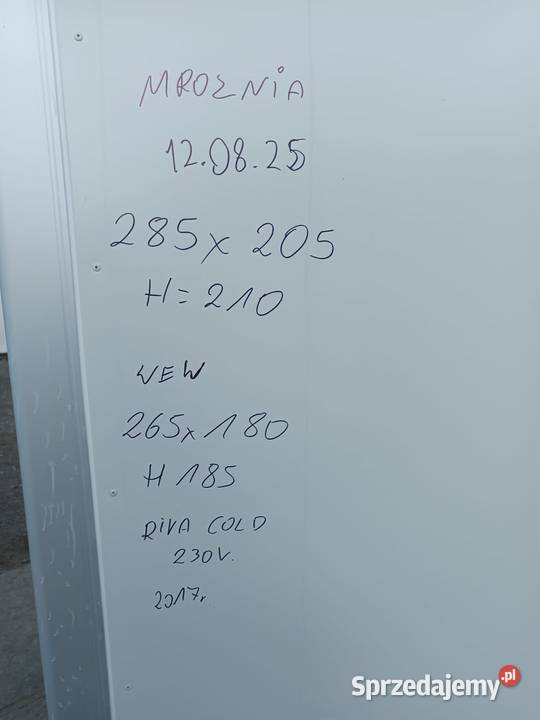 MROŹNIA
12.08.25
285 x 205
H = 210
WEW
265 x 180
H 185
RIVA COLD
230V.
2017r
Sprzedajemy.pl